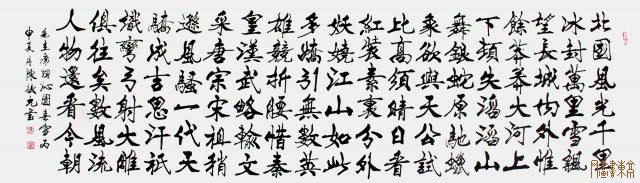 北國風光千里
冰封萬里雪飄
望長城內外惟
餘莽莽大河上
下頓失滔滔山
舞銀蛇原馳蠟
象欲與天公試
比高須晴日看
紅裝素裹分外
妖嬈江山如此
多嬌引無數英
雄競折腰惜秦
皇漢武略輸文
采唐宗宋祖稍
遜風騷一代天
驕成吉思汗祇
識彎弓射大雕
俱往矣數風流
人物還看今朝
毛主席詞沁園春雪丙
申夏月陳振元書